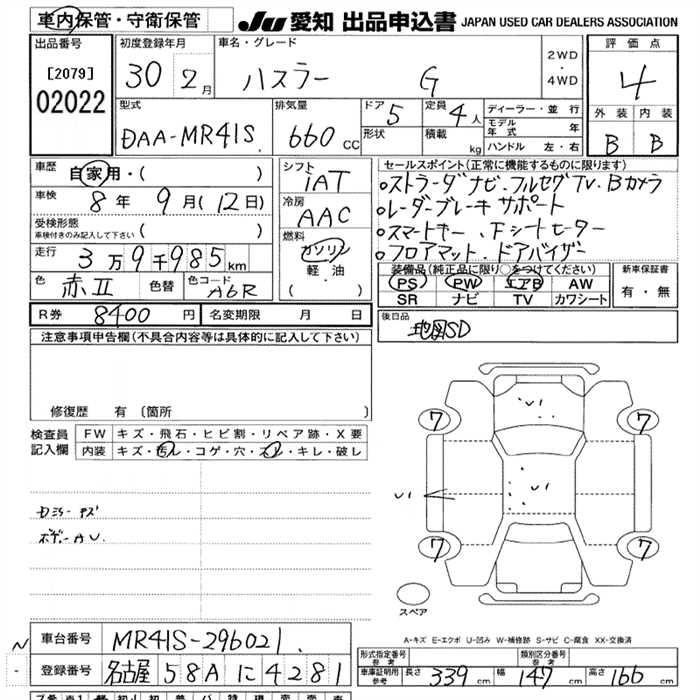 車内保管・守衛保管
JU 愛知 出品申込書 JAPAN USED CAR DEALERS ASSOCIATION
出品番号
[2079]
02022
初度登録年月
30 2月
車名・グレード
ハスラー G
2WD
・
4WD
評価点
4
外装 内装
B B
型式
DAA-MR41S
排気量
660 CC
ドア 5
形状
定員 4人
積載 kg
ディーラー・並行
モデル年式 年
ハンドル 左・右
車歴
自家用・( )
車検
8年 9月(12日)
受検形態
車検付きのみ記入して下さい ( )
走行
3万9千985km
色 赤II 色替 色コード A6R
シフト
IAT
冷房
AAC
燃料
ガソリン
軽油
( ・ )
セールスポイント(正常に機能するものに限ります)
○ストラーダナビ.フルセグTV.Bカメラ
○レーダーブレーキサポート
○スマートキー.Fシートヒーター
○フロアマット.ドアバイザー
装備品(純正品に限り○をつけてください)
PS PW エアB AW
SR ナビ TV カワシート
新車保証書
有・無
R券 8400円 名変期限 月 日
後日品
地図SD
注意事項申告欄(不具合内容等は具体的に記入して下さい)
修復歴 有 〔箇所 〕
検査員
記入欄
FW キズ・飛石・ヒビ割・リペア跡・X要
内装 キズ・汚レ・コゲ・穴・スレ・キレ・破レ
Dミラーキズ
ボデーAU.
7 7
7 7
U1
U1
U1
スペア
A-キズ E-エクボ U-凹み W-補修跡 S-サビ C-腐食 XX-交換済
車台番号 MR41S-296021
登録番号 名古屋 58A に 4281
形式指定番号 参考
類別区分番号 参考
車庫証明用 参考 長さ 339cm 幅 147cm 高さ 166cm